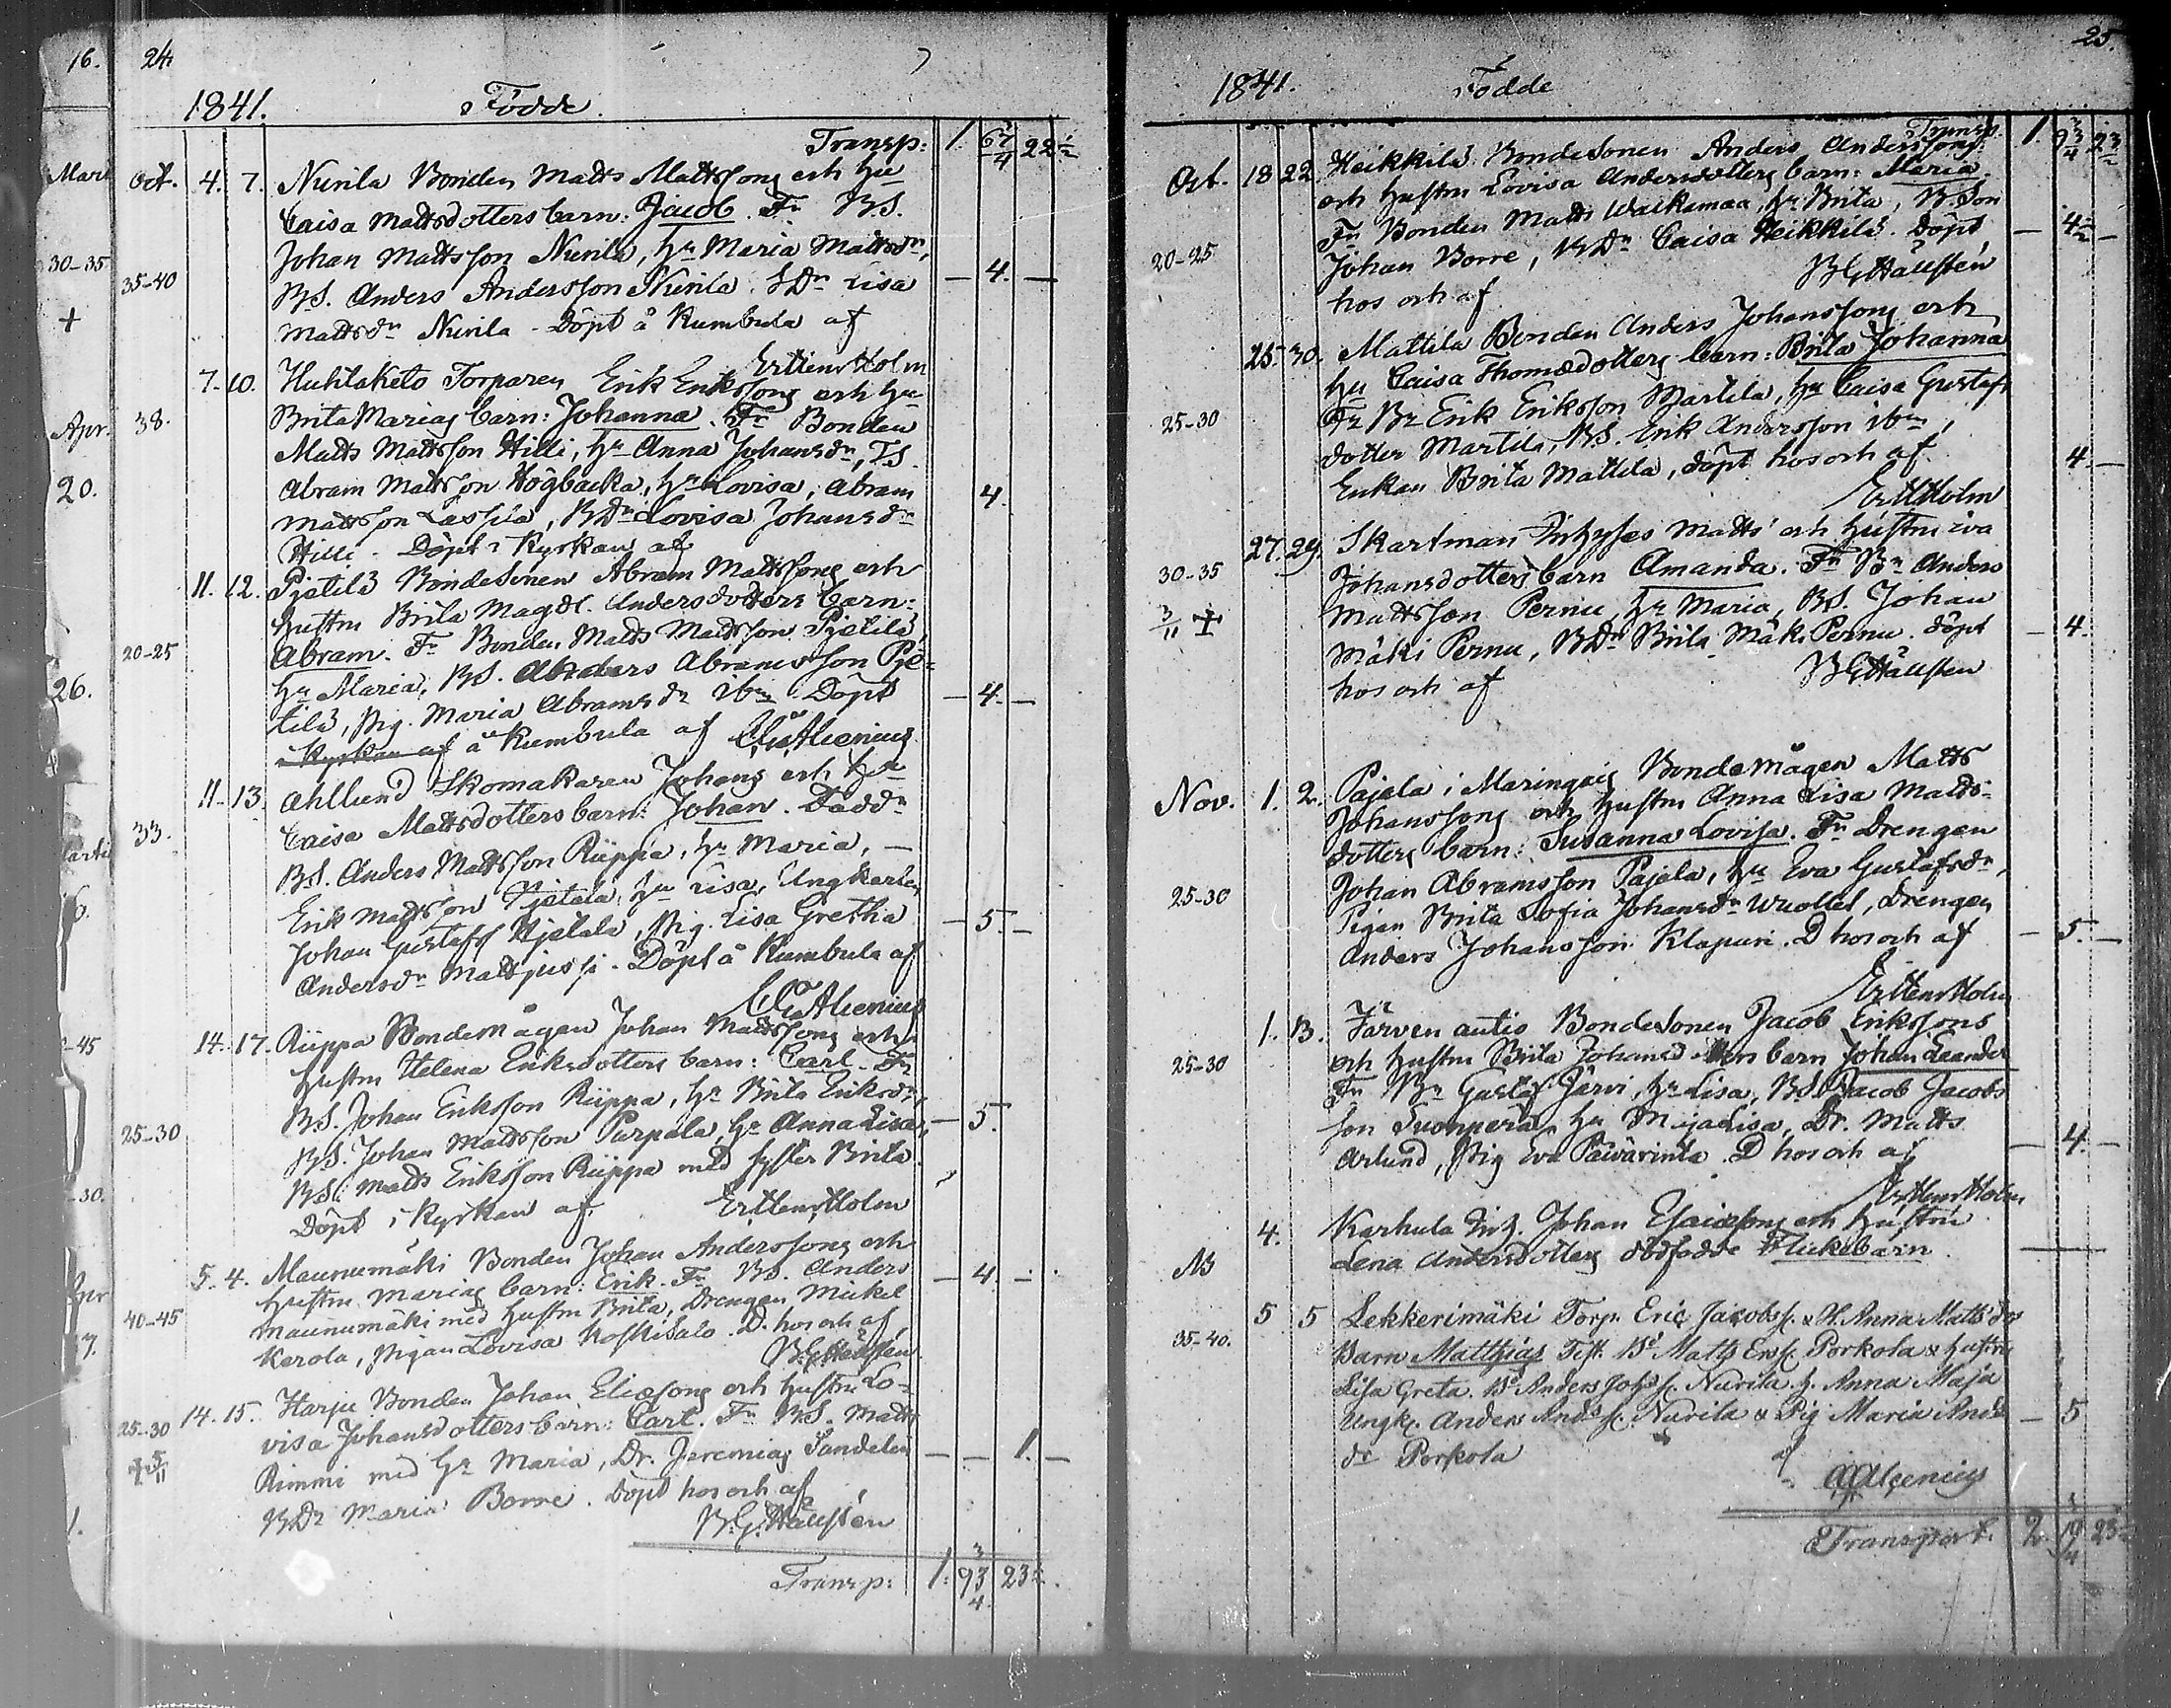 16.
Mart
30-35
+
Apr.
20.
26.
24
1841. Födde.
Transp: 1. 67 3/4 22 1/2
Oct. 4. 7. Nurila Bonden Matts Mattssons och Hu
Caisa Mattsdotters barn: Jacob. Fr BS.
35-40 Johan Mattsson Nurila, Hr Maria Mattsdr,
BS. Anders Andersson Nurila. BDr Lisa — 4. —
Mattsdr Nurila - Döpt å Kumbula af
Er Henr Holm
7. 10. Huhtaketo Torparen Erik Erikssons och Hu
38. Brita Marias barn: Johanna. Fr Bonden
Matts Mattsson Hilli, Hr Anna Johansdr, TS.
Abram Mattsson Högbacka, Hr Lovisa, Abram 4.
Mattsson Lassila, BDr Lovisa Johansdr
Hilli - Döpt i Kyrkan af
11. 12. Pjetilä Bondesonen Abram Mattssons och
Hustru Brita Magdl. Andersdotters barn:
20-25 Abram. Fr Bonden Matts Mattsson Pjetilä,
Hr Maria, BS. Anders Abramsson Pje-
tilä, Pig. Maria Abramsdr ibm Döpt — 4. —
i Kyrkan af å Kumbula af C G Alcenius
11. 13. Ahllund Skomakaren Johans och Hu
33. Caisa Mattsdotters barn: Johan. Faddr
BS. Anders Mattsson Riippa, Hr Maria, —
Erik Mattsson Pjetala, Hu Lisa, Ungkarlen
Johan Gustafs Hjelala, Pig. Lisa Gretha — 5. —
Andersdr Mattjussi - Döpt å Kumbula af
C G Alcenius
14. 17. Riippa Bondemågen Johan Mattssons och
Hustru Helena Eriksdotters barn: Carl. Fr
BS. Johan Eriksson Riippa, Hr Brita Eriksdr,
25-30 BS. Johan Mattsson Parpala, Hr Anna Lisa, — 5.
BS. Matts Eriksson Riippa med syster Brita
Döpt i Kyrkan af Er Henr Holm
5. 4. Maunumäki Bonden Johan Anderssons och
Hustru Marias barn: Erik. Fr BS. Anders — 4. —
40-45 Maunumäki med Hustru Brita, Drengen Mickel
Kerola, Pigan Lovisa Koskisalo. D. hos och af
B G Hällsten
14. 15. Harju Bonden Johan Eliæsons och Hustru Lo-
25-30 visa Johansdotters barn: Carl. Fr BS. Matts
+ 5/11 Rimmi med Hr Maria, Dr. Jeremias Sandelin — — 1. —
BDr Maria Borre. Döpt hos och af
B. G. Hällsten
Transp: 1. 93 3/4 23 1/2
25.
1841. Födde
Transp. 1. 93 3/4 23 1/2
Oct. 18 22 Heikkilä Bondesonen Anders Anderssons
och Hustru Lovisa Andersdotters barn: Maria.
Fr Bonden Matts Waikamaa, Hr Brita, BSon — 4 1/2 —
20-25 Johan Borre, BDr Caisa Heikkilä. Döpt
hos och af B G Hällsten
25. 30. Mattila Bonden Anders Johanssons och
Hu Caisa Thomædotters barn: Brita Johanna
25-30 Fr Br Erik Eriksson Martila, Hu Caisa Gustafs
dotter Martila, BS. Erik Andersson ibm,
Enkan Brita Mattila, döpt hos och af 4. —
Er H Holm
27. 29. Skartman Inhyses Matts och Hustru Eva
30-35 Johansdotters barn Amanda. Fr Br Anders
3/11 + Mattsson Pernu, Hr Maria, BS. Johan
Mäki Pernu, BDr Brita Mäki Pernu. döpt — 4.
hos och af B G Hällsten
Nov. 1. 2. Pajala i Maringais Bondemågen Matts
Johanssons och Hustru Anna Lisa Matts-
dotters barn: Susanna Lovisa. Fr Drengen
25-30 Johan Abramsson Pajala, Hu Eva Gustafsdr,
Pigan Brita Sofia Johansdr Wuollet, Drengen
Anders Johansson Klapuri. D hos och af — 5. —
Er Henr Holm
1. 3. Järvenautio Bondesonen Jacob Erikssons
25-30 och Hustru Brita Johansdotters barn Johan Leander
Fr Br Gustaf Järvi, Hr Lisa, BS Jacob Jacobs
son Tuonperä, Hu Maja Lisa, Dr. Matts
Arlund, Pig Eva Päivärinta D hos och af — 4. —
Er Henr Holm
4. Karhula Inh. Johan Esaiæsons och Hustru
NB Lena Andersdotters dödfödde Flickebarn —
5 5 Lekkerimäki Torp. Eric Jacobss. & H. Anna Matts'drs
35-40. Barn Matthias Test. Be Matts Erss. Porkola & hustru
Lisa Greta. Be Anders Johss. Nurila. h. Anna Maja
Ungk. Anders Ands s. Nurila & Pig Maria Ands — 5
dr Porkola af
A Alcenius
Transport. 2. 19 3/4 23 1/2